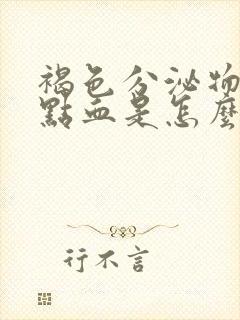 褐色分泌物
點血是怎麼
行不言